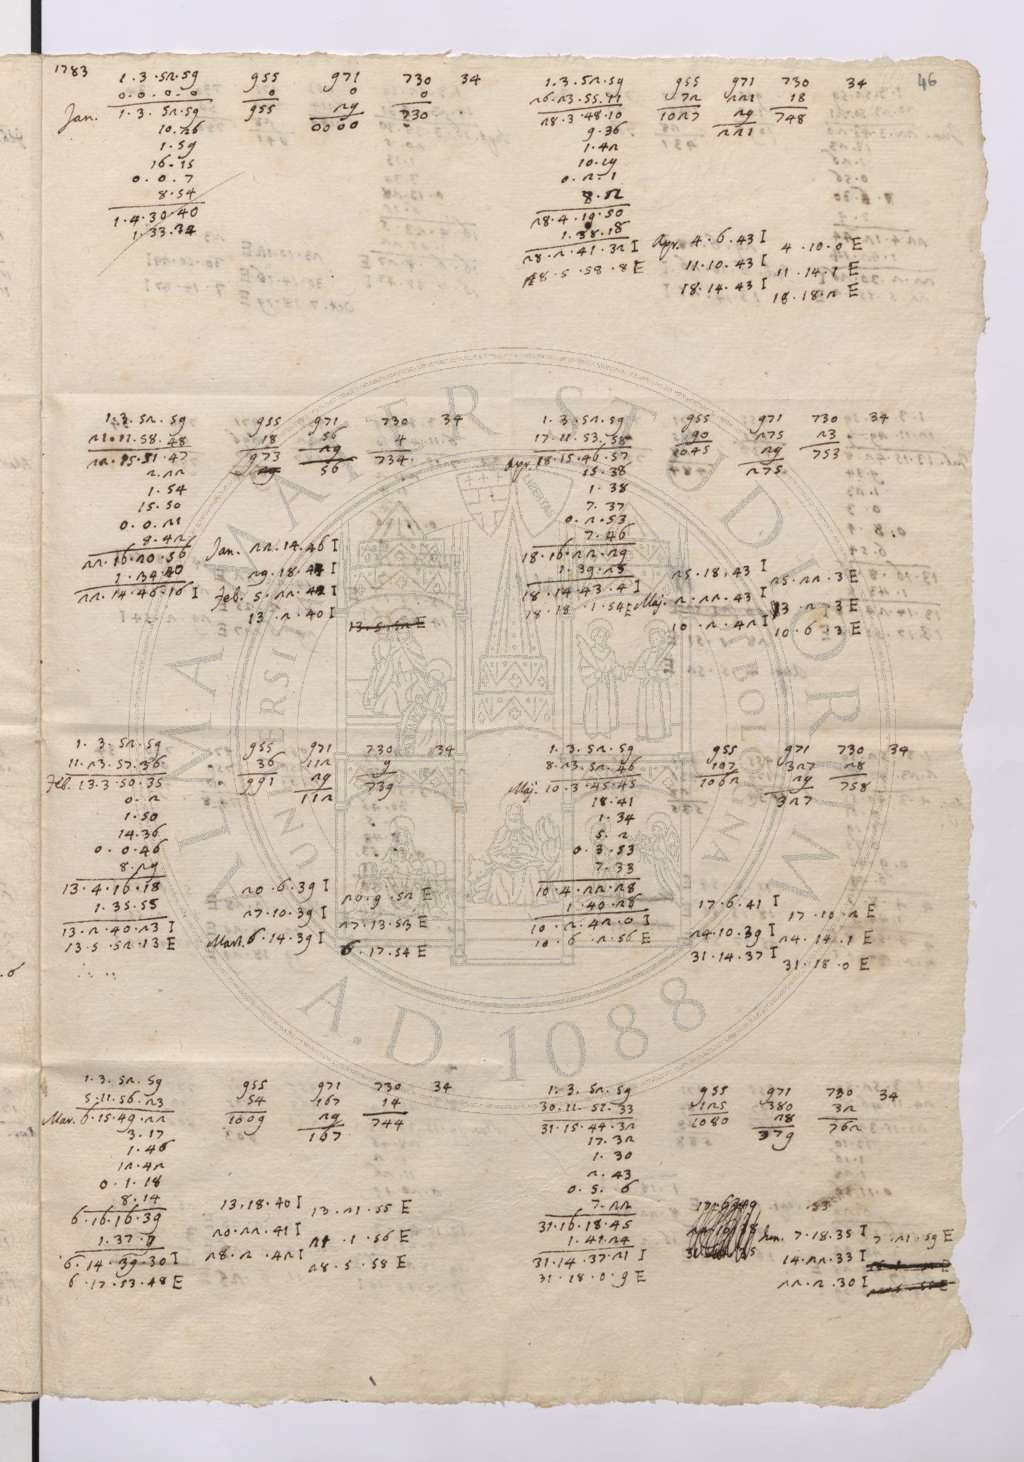 1783
1.3.52.59 955 971 730 34
0.0.0.0 0 0 0
Jan. 1.3.52.59 955 29 730
10.26 0000
1.59
16.15
0.0.7
8.54
1.4.30.40
1.33.34
46
1.3.52.59 955 971 730 34
26.23.55.11 72 221 18
28.3.48.10 1027 29 748
9.36 221
1.42
10.19
0.2.1
8.52
28.4.19.50
1.38.18
28.2.41.32 I Apr. 4.6.43 I 4.10.0 E
28.5.58.8 E 11.10.43 I 11.14.1 E
18.14.43 I 18.18.2 E
1.3.52.59 955 971 730 34
21.11.58.48 18 56 4
22.15.51.47 973 29 734
2.22 29 56
1.54
15.50
0.0.21
8.42
22.16.20.56 Jan. 22.14.46 I
1.34.40 29.18.44 I
22.14.46.16 I Feb. 5.22.42 I
13.2.40 I
1.3.52.59 955 971 730 34
17.11.53.58 90 275 23
Apr. 18.15.46.57 1045 29 753
15.38 275
1.38
7.37
0.2.53
7.46
18.16.22.29
1.39.28 25.18.43 I 25.22.3 E
18.14.43.4 I Maj. 2.22.43 I 3.2.3 E
18.18.1.54 E 10.2.42 I 10.6.3 E
1.3.52.59 955 971 730 34
11.23.57.36 36 112 9
Feb. 13.3.50.35 991 29 739
0.2 112
1.50
14.36
0.0.46
8.29
13.4.16.18 20.6.39 I 20.9.52 E
1.35.55 27.10.39 I 27.13.53 E
13.2.40.23 I Mart. 6.14.39 I 6.17.54 E
13.5.52.13 E
1.3.52.59 955 971 730 34
8.23.52.46 107 327 28
Maj. 10.3.45.45 1062 29 758
18.41 327
1.34
5.2
0.3.53
7.33
10.4.22.28
1.40.28 17.6.41 I 17.10.2 E
10.2.42.0 I 24.10.39 I 24.14.1 E
10.6.2.56 E 31.14.37 I 31.18.0 E
1.3.52.59 955 971 730 34
5.11.56.23 54 167 14
Mar. 6.15.49.22 1009 29 744
3.17 167
1.46
12.42
0.1.18
8.14
6.16.16.39 13.18.40 I 13.21.55 E
1.37.9 20.22.41 I 21.1.56 E
6.14.39.30 I 28.2.42 I 28.5.58 E
6.17.53.48 E
1.3.52.59 955 971 730 34
30.11.51.33 125 380 32
31.15.44.32 1080 28 762
17.32 379
1.30
2.43
0.5.6
7.22
31.16.18.45
1.41.24 Jun. 7.18.35 I 7.21.59 E
31.14.37.21 I 14.22.33 I
31.18.0.9 E 22.2.30 I